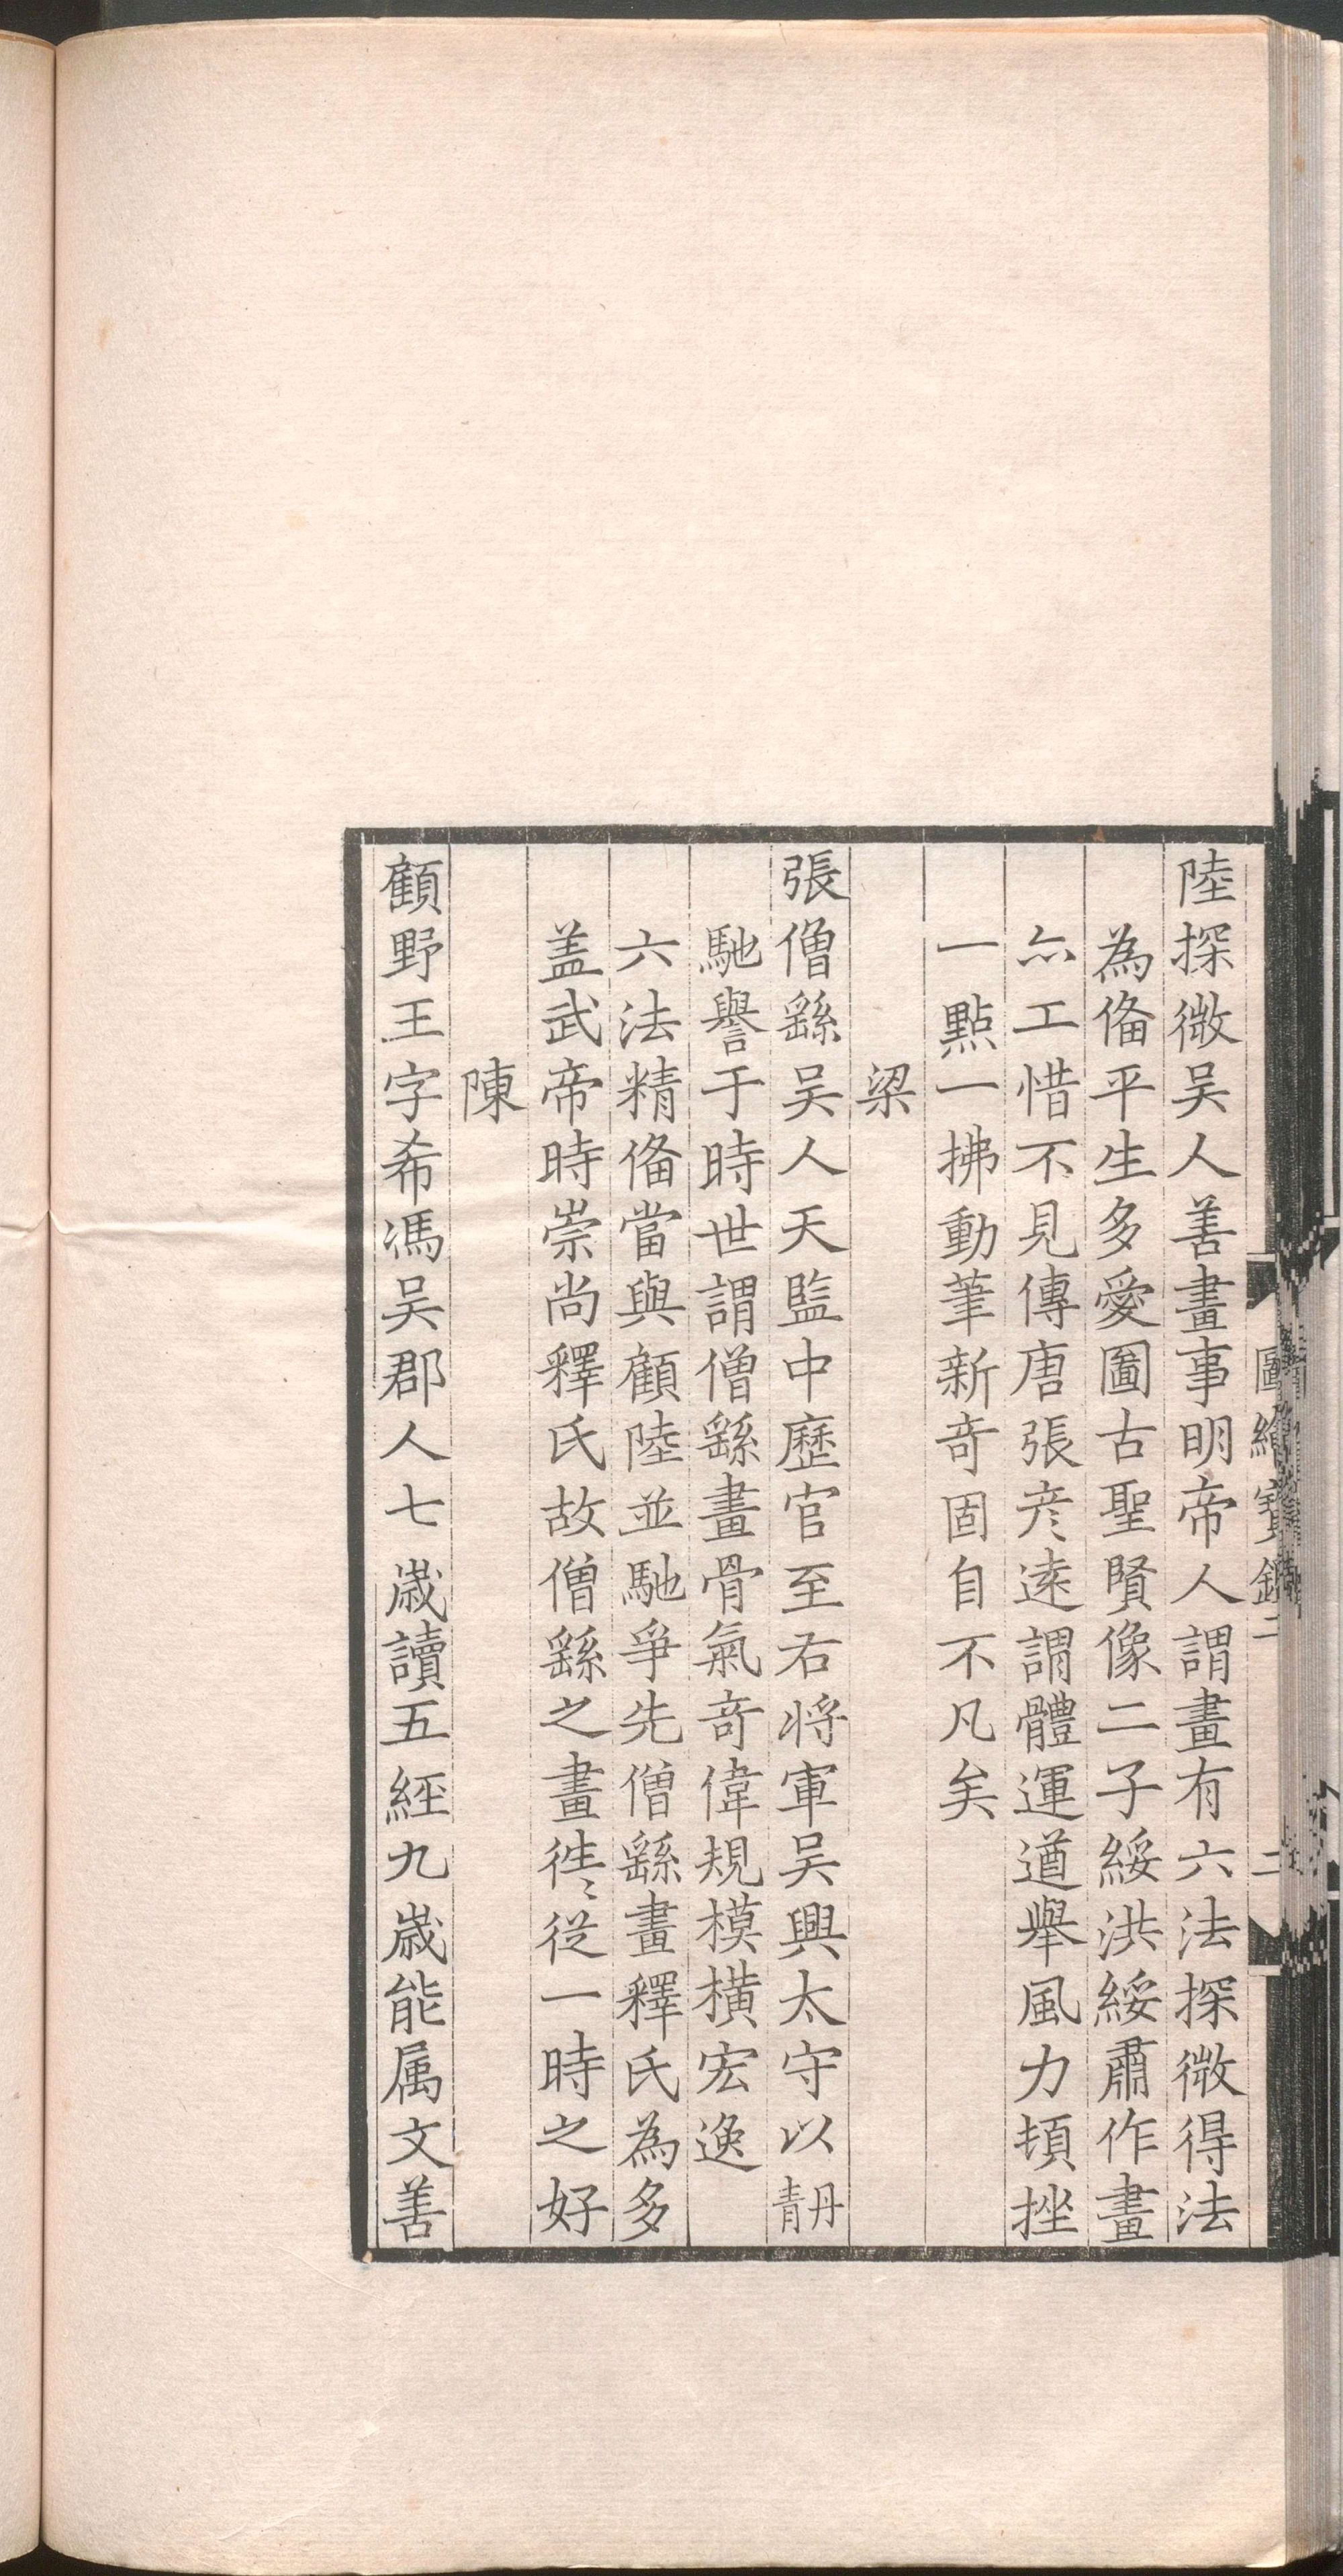 陸探微吴人善畫事明帝人謂畫有六法探微得法
為俻平生多愛圖古聖賢像二子綏洪綏肅作畫
亦工惜不見傳唐張彦逺謂體運遒舉風力頓挫
一點一拂動筆新竒固自不凡矣
梁
張僧繇吴人天監中歷官至右将軍吴興太守以丹青
馳譽于時世謂僧繇畫骨氣竒偉規模橫宏逸
六法精俻當與顧陸並馳爭先僧繇畫釋氏為多
盖武帝時崇尚釋氏故僧繇之畫徃〻從一時之好
陳
顧野王字希馮吴郡人七歲讀五經九歲能属文善
圖繪寶鑑二
二